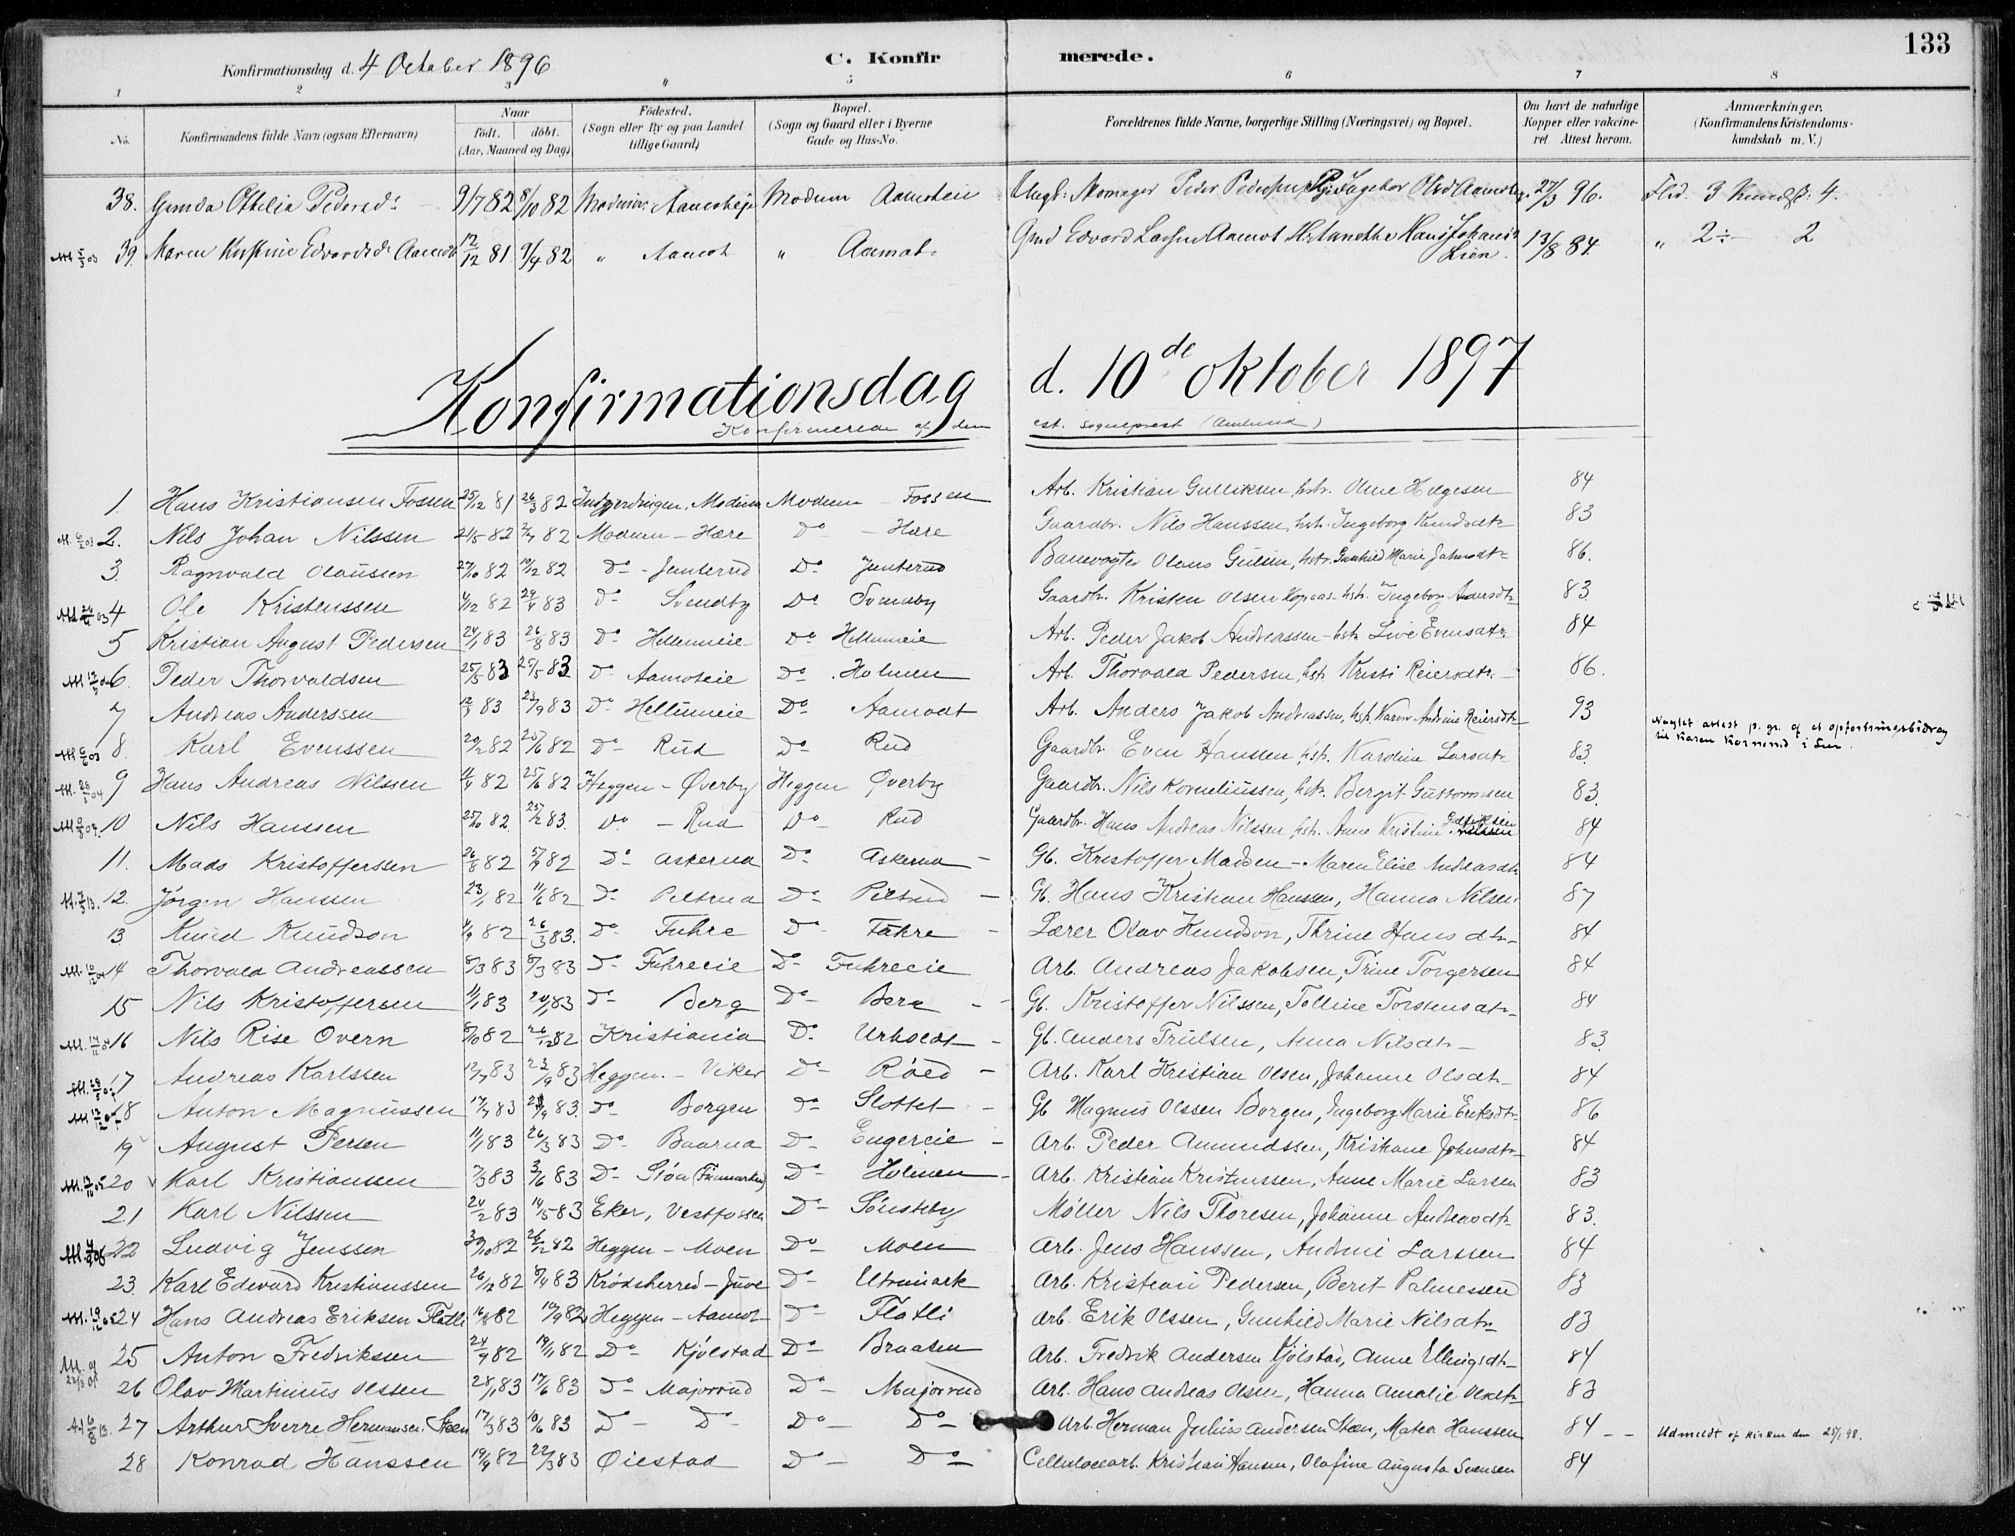 133
Konfirmationsdag d. 4 October 1896
C. Konfir merede.
1 2 3 4 5 6 7 8
No. Konfirmandens fulde Navn (ogsaa Efternavn) Naar födt. döbt. (Aar, Maaned og Dag) Födested. (Sogn eller By og paa Landet tillige Gaard) Bopæl. (Sogn og Gaard eller i Byerne Gade og Hus-No. Forældrenes fulde Navne, borgerlige Stilling (Næringsvei) og Bopæl. Om havt de naturlige Kopper eller vakcineret. Attest herom. Anmærkninger, (Konfirmandens Kristendomskundskab m. V.)
38. Gunda Othilia Pedersd. 9/7 82 8/10 82 Modum Aamoteie Modum Aamoteie Peder Ingebor 27/3 96. Flid 3 Kundsk: 4.
39. Maren Edvardsd. Aamodt 12/12 81 9/4 82 " Aamot " Aamot Edvard Larsen Aamot Hans Lien 13/8 84. " 2÷ 2
Konfirmationsdag d. 10de oktober 1897
Konfirmeret af den est. sogneprest
1. Hans Kristiansen Fossen 25/12 81 26/3 82 Modum Modum - Fossen Arb. Kristian Gulliksen, hstr. Olsen Helgesen 84
2. Nils Johan Nilssen 21/5 82 2/7 82 Modum - Hære Do - Hære Gaardbr. Nils Hanssen, hstr. Ingeborg Knudsdtr. 83
3. Ragnvald Olaussen 27/10 82 10/12 82 Do - Junterud Do Junterud Banevogter Olaus Gulsen, hstr. Gunhild Marie Jahnsdtr. 86.
4 Ole Kristenssen 4/12 82 29/4 83 Do Svendby Do Svendby Gaardbr. Kristen Olsen hstr. Ingeborg Andersdtr. 83
5 Kristian August Pedersen 24/1 83 26/8 83 Do Hellumeie Do Hellumeie Arb. Peder Jakob Andreassen - hstr. Live Evensdtr. 84
6. Peder Thorvaldsen 25/5 83 27/5 83 Do Aamoteie Do Holmen Arb. Thorvald Pedersen, hstr. Kristi Reiersdtr. 86.
7 Andreas Anderssen 12/3 83 23/9 83 Do Hellumeie Do Aamodt Arb. Anders Jakob Andreassen, hstr. Karen Andrine Reiersdtr. 93
8. Karl Evenssen 20/2 82 25/6 82 Do Rud Do Rud Gaardbr. Even Hanssen, hstr. Karoline Larsdtr. 83. attest p. gr. af et til Karen i
9 Hans Andreas Nilssen 4/4 82 25/6 82 Heggen - Øverby Heggen Øverby Gaardbr. Nils Korneliussen, hstr. Bergit Guttormsen 83.
10 Nils Hanssen 25/10 82. 25/2 83. Do - Rud Do Rud Gaardbr. Hans Andreas Nilssen, hstr. Anne Kristine 84
11. Mads Kristofferssen 26/8 82 82 Do Askerud Do Askerud - Gb. Kristoffer Madsen - Maren Elise Andreasdtr. 84
12. Jörgen Hanssen 23/1 82 11/6 82 Do Peltrud Do Peltrud - Gb. Hans Kristian Hanssen, Hanna Nilsen 87
13. Knud Knudson 4/9 82 26/3 83. Do Fuhre Do Fuhre - Lærer Olav Knudson, Thrine Hansdtr. 84
14 Thorvald Andreassen 83 83 Do Fuhreeie Do Fuhreeie Arb. Andreas Jakobsen, Trine Torgersen 84
15 Nils Kristoffersen 11/1 83 83 Do Berg Do Berg - Gb. Kristoffer Nilssen, Tolline Torstensdtr. 84
16 Nils Rise Overn 8/10 82 26/12 82 Kristiania Do - Gb. Anders Trulsen, Anna Nilsdtr. 83.
17 Andreas Karlssen 12/7 83 23/9 83 Heggen - Viker Do Röed - Arb. Karl Kristian Olsen, Johanne Olsdtr. 84
18 Anton Magnussen 17/7 83 83. Do Borgen Do Slottet - Gb. Magnus Olssen Borgen, Ingeborg Marie Eriksdtr. 86
19 August Persen 11/1 83 26/3 83 Do Baarud Do Engereie - Arb. Peder Amundssen, Kristiane Johnsdtr. 84
20 Karl Kristianssen 7/3 83 3/6 83 Do Stöa Do Holmen - Arb. Kristian Kristenssen, Anne Marie Larsen 83
21 Karl Nilssen 24/2 83 14/5 83 Eker, Vestfossen Do Sönsteby Møller Nils Thoresen, Johanne Andreasdtr. 83.
22 Ludvig Jenssen 30/10 82 26/12 82 Heggen - Moen Do Moen Arb. Jens Hanssen, Andrine Larssen 84
23. Karl Edevard Kristianssen 26/12 82 8/4 83 Krödsherred - Juve Do Utmark Arb. Kristian Pedersen, Berit Palmessen 83
24 Hans Andreas Eriksen Flatli 16/8 82 17/9 82 Heggen - Aamot Do Flatli Arb. Erik Olssen, Gunhild Marie Nilsdtr. 83
25 Anton Fredriksen 24/9 82 19/11 82 Do Kjölstad Do Braaten Arb. Fredrik Andersen Kjölstad, Anne Ellingsdtr. 84
26 Olav Martinius Olssen 28/1 83 17/6 83 Do Majorrud Do Majorrud Arb. Hans Andreas Olsen, Hanna Amalie Olsdtr. 83
27 Arthur Sverre Hermansen Steen 17/3 83 10/6 83 Do - Do Do - Do Arb. Herman Julius Andersen Steen, Matea Hanssen 84 - - Udmeldt af kirken den 25/1 98.
28 Konrad Hanssen 19/9 82 22/3 83 Öiestad Do - Do Cellulosearb. Kristian Hansen, Olafine Augusta Svensen 84